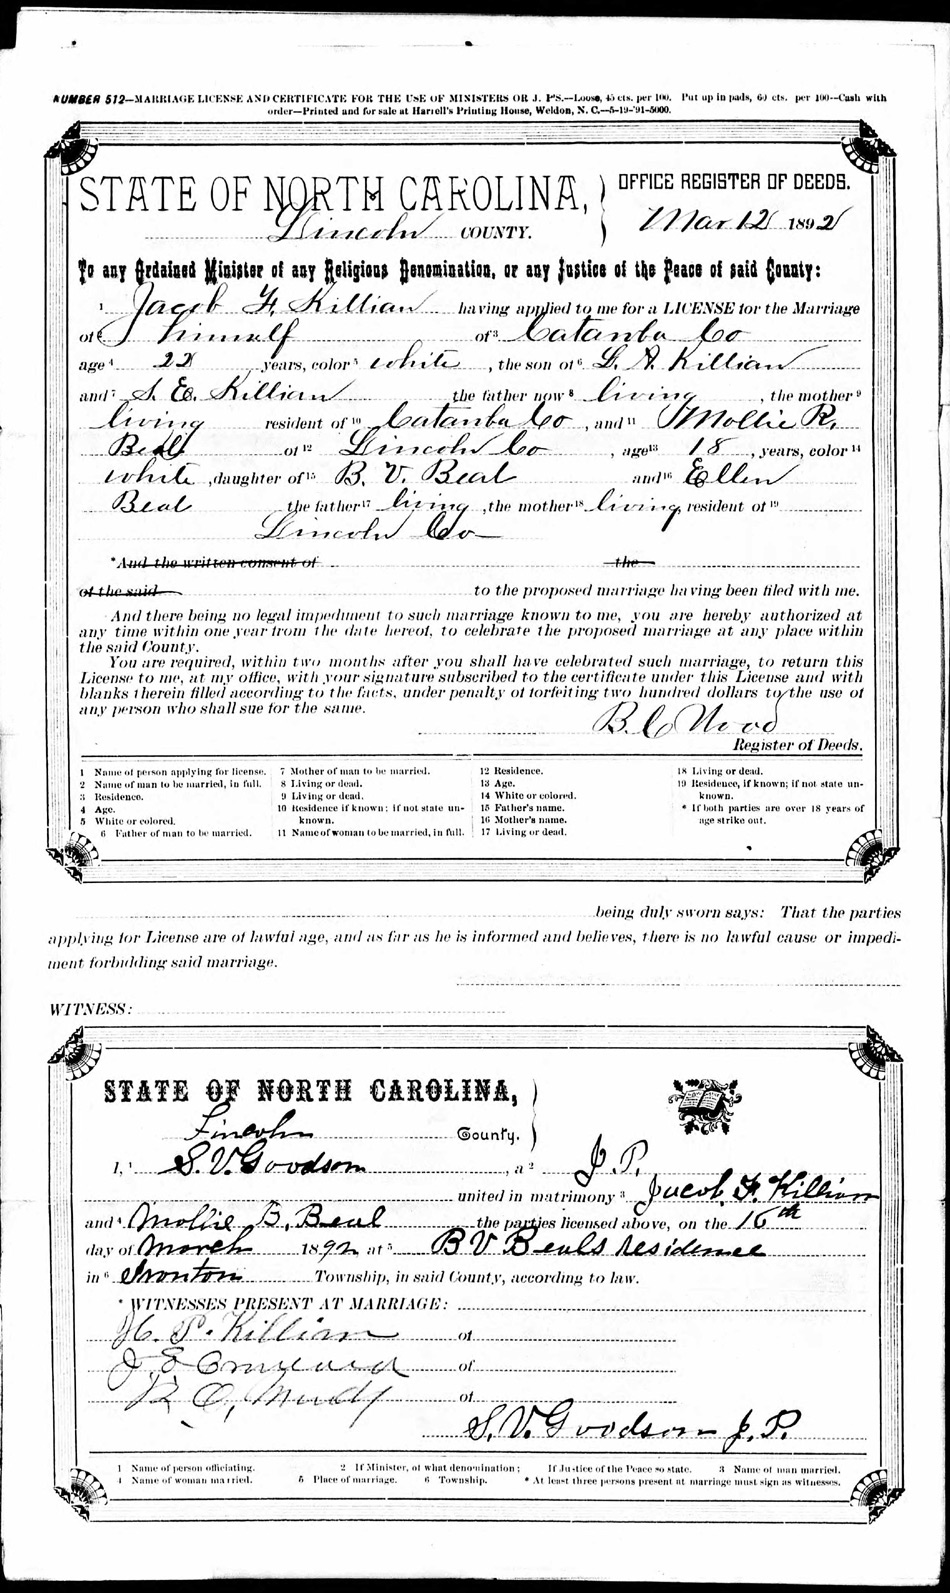 NUMBER 512—MARRIAGE LICENSE AND CERTIFICATE FOR THE USE OF MINISTERS OR J. P'S.—Loose, 45 cts. per 100. Put up in pads, 60 cts. per 100—Cash with
order—Printed and for sale at Harrell's Printing House, Weldon, N. C.—5-19-'91-5000.
STATE OF NORTH CAROLINA,
OFFICE REGISTER OF DEEDS.
Lincoln COUNTY.
Mar 12 1892
To any Ordained Minister of any Religious Denomination, or any Justice of the Peace of said County:
1 Jacob F. Killian having applied to me for a LICENSE for the Marriage
of 2 himself of 3 Catawba Co
age 4 22 years, color 5 white, the son of 6 L. A. Killian
and 7 S. E. Killian the father now 8 living, the mother 9
living resident of 10 Catawba Co, and 11 Mollie R.
Beal of 12 Lincoln Co, age 13 18, years, color 14
white, daughter of 15 B. V. Beal and 16 Ellen
Beal the father 17 living, the mother 18 living, resident of 19
Lincoln Co
*And the written consent of the
of the said to the proposed marriage having been filed with me.
And there being no legal impediment to such marriage known to me, you are hereby authorized at
any time within one year from the date hereof, to celebrate the proposed marriage at any place within
the said County.
You are required, within two months after you shall have celebrated such marriage, to return this
License to me, at my office, with your signature subscribed to the certificate under this License and with
blanks therein filled according to the facts, under penalty of forfeiting two hundred dollars to the use of
any person who shall sue for the same.
B. C. Wood
Register of Deeds.
1 Name of person applying for license.
2 Name of man to be married, in full.
3 Residence.
4 Age.
5 White or colored.
6 Father of man to be married.
7 Mother of man to be married.
8 Living or dead.
9 Living or dead.
10 Residence if known; if not state un-
known.
11 Name of woman to be married, in full.
12 Residence.
13 Age.
14 White or colored.
15 Father's name.
16 Mother's name.
17 Living or dead.
18 Living or dead.
19 Residence, if known; if not state un-
known.
* If both parties are over 18 years of
age strike out.
being duly sworn says: That the parties
applying for License are of lawful age, and as far as he is informed and believes, there is no lawful cause or impedi-
ment forbidding said marriage.
WITNESS:
STATE OF NORTH CAROLINA,
Lincoln County.
I, 1 S. V. Goodson, a 2 J. P.
united in matrimony 3 Jacob F. Killian
and 4 Mollie B. Beal the parties licensed above, on the 16th
day of March 1892 at 5 B V Beals residence
in 6 Ironton Township, in said County, according to law.
* WITNESSES PRESENT AT MARRIAGE:
H. P. Killian of
J. E. of
R. C. of
S. V. Goodson J. P.
1 Name of person officiating. 2 If Minister, of what denomination; If Justice of the Peace so state. 3 Name of man married.
4 Name of woman married. 5 Place of marriage. 6 Township. * At least three persons present at marriage must sign as witnesses.